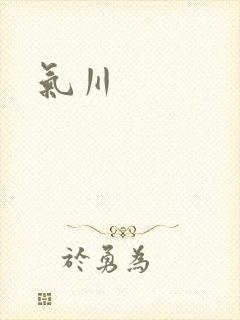 氣川
於勇為